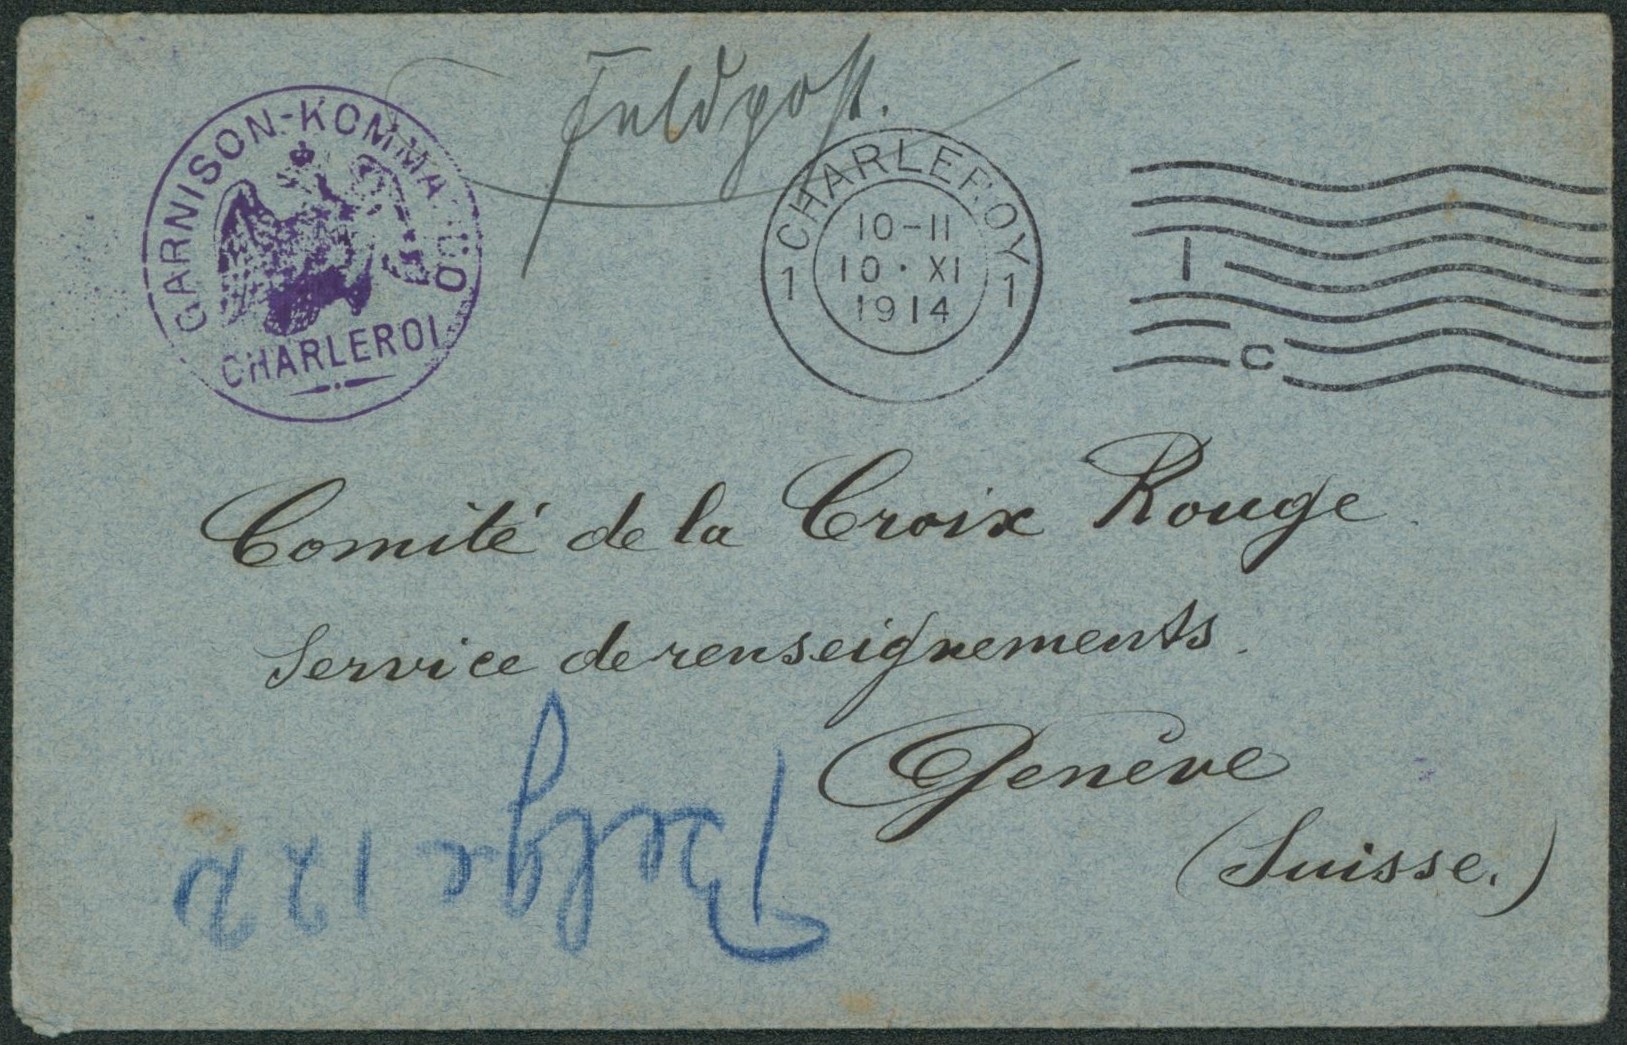 Feldpost.
GARNISON-KOMMANDO
CHARLEROI
CHARLEROY
1 1
10-11
10· XI
1914
1
C
Comité de la Croix Rouge
Service de renseignements.
Genève
(Suisse.)
Belge 122